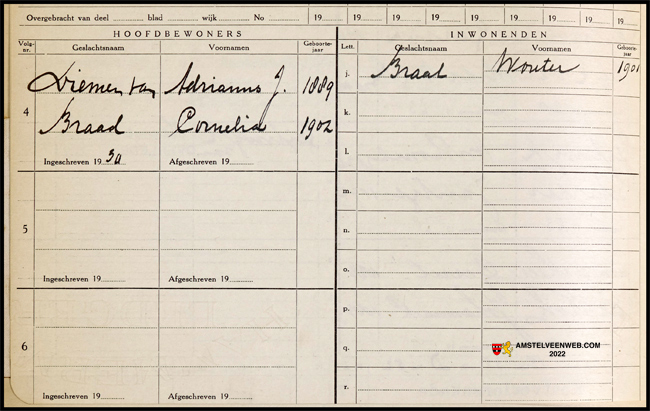 Overgebracht van deel blad wijk No 19 19 19 19 19 19 19
HOOFDBEWONERS
Volg-nr. Geslachtsnaam Voornamen Geboorte-jaar
4
Diemen van Adrianus J. 1889
Braad Cornelia 1902
Ingeschreven 19 30 Afgeschreven 19
5
Ingeschreven 19 Afgeschreven 19
6
Ingeschreven 19 Afgeschreven 19
INWONENDEN
Lett. Geslachtsnaam Voornamen Geboorte-jaar
j. Braat Wouter 1901
k.
l.
m.
n.
o.
p.
q.
r.
AMSTELVEENWEB.COM
2022